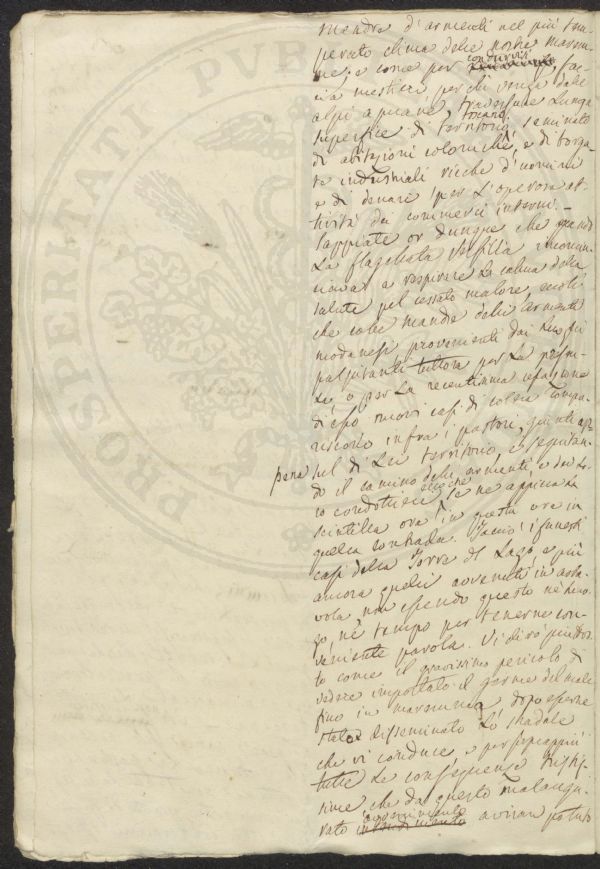 mandre d'armenti nel più tem-
perato clima delle nostre marem-
me; e come per condurvisi fac-
cia mestieri per chi venga dalle
alpi apuane, traversare lunga
superfice di territorio toscano, seminato
di abitazioni coloniche, e di borga-
te industriali ricche d'uomini
e di denari per l'operosa at-
tività dei commerci interni. —
Sappiate or dunque che quando
La flagellata Versilia rincomin-
ciava a respirare la calma della
salute pel cessato malore, eccoti
che colle mandre delli armenti
modanesi provenienti dai luoghi
palpitanti tuttora per La
o per La recentissima cessazione
di esso nuovi casi di colera compa-
riscono infra i pastori, giunti ap-
pena nel di Lei territorio, e seguitan-
do il camino delli armenti, e dei lo-
ro condottieri ecco che se ne appicca la
scintilla ora in questa ora in
quella contrada. Taccio i funesti
casi della Torre del Lago, e più
ancora quelli avvenuti in
non essendo questo nè luo-
go, nè tempo per tenerne con-
veniente parola. Vi dirò piuttos-
to come il gravissimo pericolo di
vedere importato il germe del male
fino in maremma dopo esserne
stato disseminato lo stradale
che vi conduce, e per soprappiù
tutte le conseguenze tristis-
sime, che da questo malaugu-
rato avvenimento avrian potuto
PROSPERITATI PUBLICAE